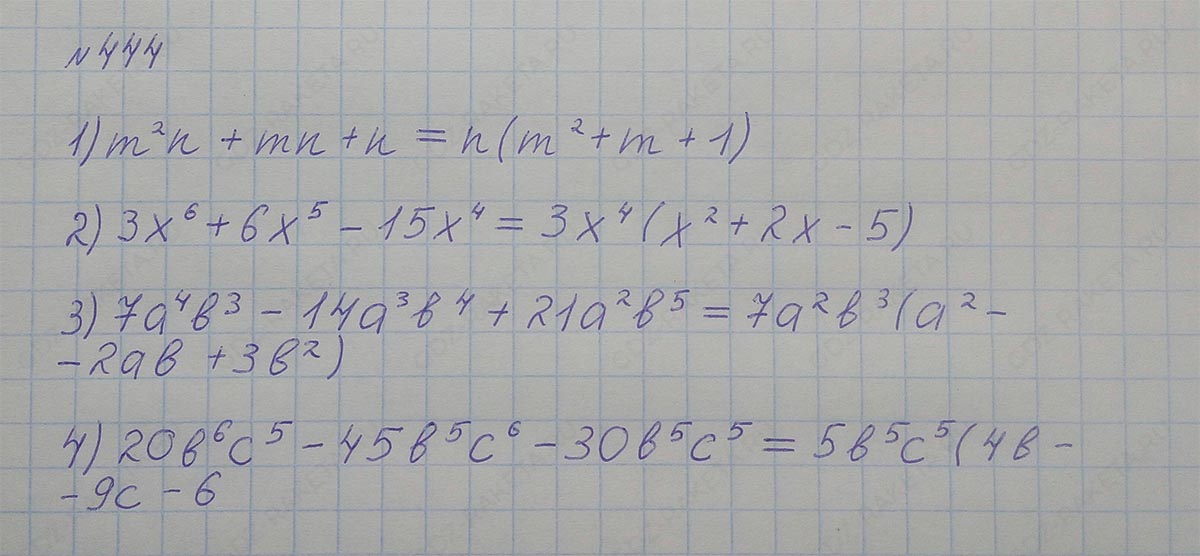 №444
1) m²n + mn + n = n(m² + m + 1)
2) 3x⁶ + 6x⁵ - 15x⁴ = 3x⁴(x² + 2x - 5)
3) 7a⁴b³ - 14a³b⁴ + 21a²b⁵ = 7a²b³(a² -
- 2ab + 3b²)
4) 20b⁶c⁵ - 45b⁵c⁶ - 30b⁵c⁵ = 5b⁵c⁵(4b -
- 9c - 6